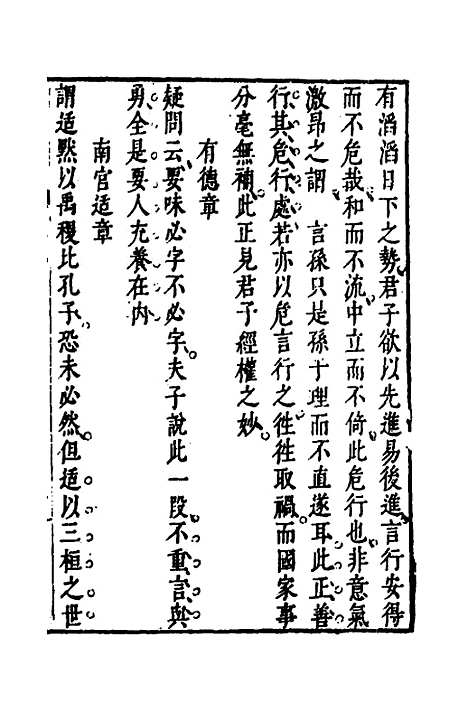 有滔滔日下之勢君子欲以先進易後進言行安得
而不危哉和而不流中立而不倚此危行也非意氣
激昂之謂　言孫只是孫于理而不直遂耳此正善
行其危行處若亦以危言行之徃徃取禍而國家事
分毫無補此正見君子經權之妙
有德章
疑問云要味必字不必字夫子說此一段不重言與
勇全是要人充養在內
南宮适章
謂适黙以禹稷比孔子恐未必然但适以三桓之世